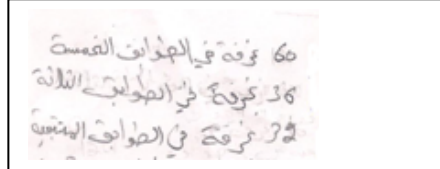 60 غرفة في الطوابق الخمسة
36 غرفة في الطوابق الثلاثة
32 غرفة في الطوابق المتبقية